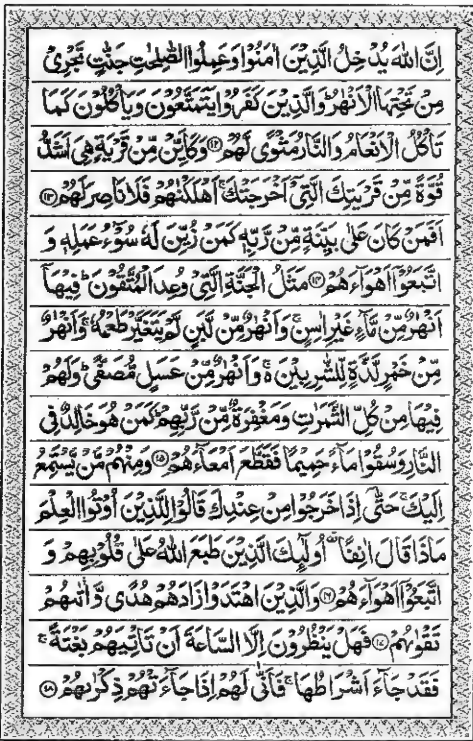 اِنَّ اللّٰهَ يُدْخِلُ الَّذِيْنَ اٰمَنُوْا وَعَمِلُوا الصّٰلِحٰتِ جَنّٰتٍ تَجْرِيْ
مِنْ تَحْتِهَا الْاَنْهٰرُ ؕ وَالَّذِيْنَ كَفَرُوْا يَتَمَتَّعُوْنَ وَيَاْكُلُوْنَ كَمَا
تَاْكُلُ الْاَنْعَامُ وَالنَّارُ مَثْوًى لَّهُمْ ﴿۱۲﴾ وَكَاَيِّنْ مِّنْ قَرْيَةٍ هِيَ اَشَدُّ
قُوَّةً مِّنْ قَرْيَتِكَ الَّتِيْٓ اَخْرَجَتْكَ ۚ اَهْلَكْنٰهُمْ فَلَا نَاصِرَ لَهُمْ ﴿۱۳﴾
اَفَمَنْ كَانَ عَلٰى بَيِّنَةٍ مِّنْ رَّبِّهٖ كَمَنْ زُيِّنَ لَهٗ سُوْٓءُ عَمَلِهٖ وَ
اتَّبَعُوْٓا اَهْوَآءَهُمْ ﴿۱۴﴾ مَثَلُ الْجَنَّةِ الَّتِيْ وُعِدَ الْمُتَّقُوْنَ ؕ فِيْهَآ
اَنْهٰرٌ مِّنْ مَّآءٍ غَيْرِ اٰسِنٍ ۚ وَاَنْهٰرٌ مِّنْ لَّبَنٍ لَّمْ يَتَغَيَّرْ طَعْمُهٗ ۚ وَاَنْهٰرٌ
مِّنْ خَمْرٍ لَّذَّةٍ لِّلشّٰرِبِيْنَ ۚ وَاَنْهٰرٌ مِّنْ عَسَلٍ مُّصَفًّى ؕ وَلَهُمْ
فِيْهَا مِنْ كُلِّ الثَّمَرٰتِ وَمَغْفِرَةٌ مِّنْ رَّبِّهِمْ ؕ كَمَنْ هُوَ خَالِدٌ فِي
النَّارِ وَسُقُوْا مَآءً حَمِيْمًا فَقَطَّعَ اَمْعَآءَهُمْ ﴿۱۵﴾ وَمِنْهُمْ مَّنْ يَّسْتَمِعُ
اِلَيْكَ ۚ حَتّٰٓى اِذَا خَرَجُوْا مِنْ عِنْدِكَ قَالُوْا لِلَّذِيْنَ اُوْتُوا الْعِلْمَ
مَاذَا قَالَ اٰنِفًا ۫ اُولٰٓئِكَ الَّذِيْنَ طَبَعَ اللّٰهُ عَلٰى قُلُوْبِهِمْ وَ
اتَّبَعُوْٓا اَهْوَآءَهُمْ ﴿۱۶﴾ وَالَّذِيْنَ اهْتَدَوْا زَادَهُمْ هُدًى وَّاٰتٰىهُمْ
تَقْوٰىهُمْ ﴿۱۷﴾ فَهَلْ يَنْظُرُوْنَ اِلَّا السَّاعَةَ اَنْ تَاْتِيَهُمْ بَغْتَةً ۚ
فَقَدْ جَآءَ اَشْرَاطُهَا ۚ فَاَنّٰى لَهُمْ اِذَا جَآءَتْهُمْ ذِكْرٰىهُمْ ﴿۱۸﴾